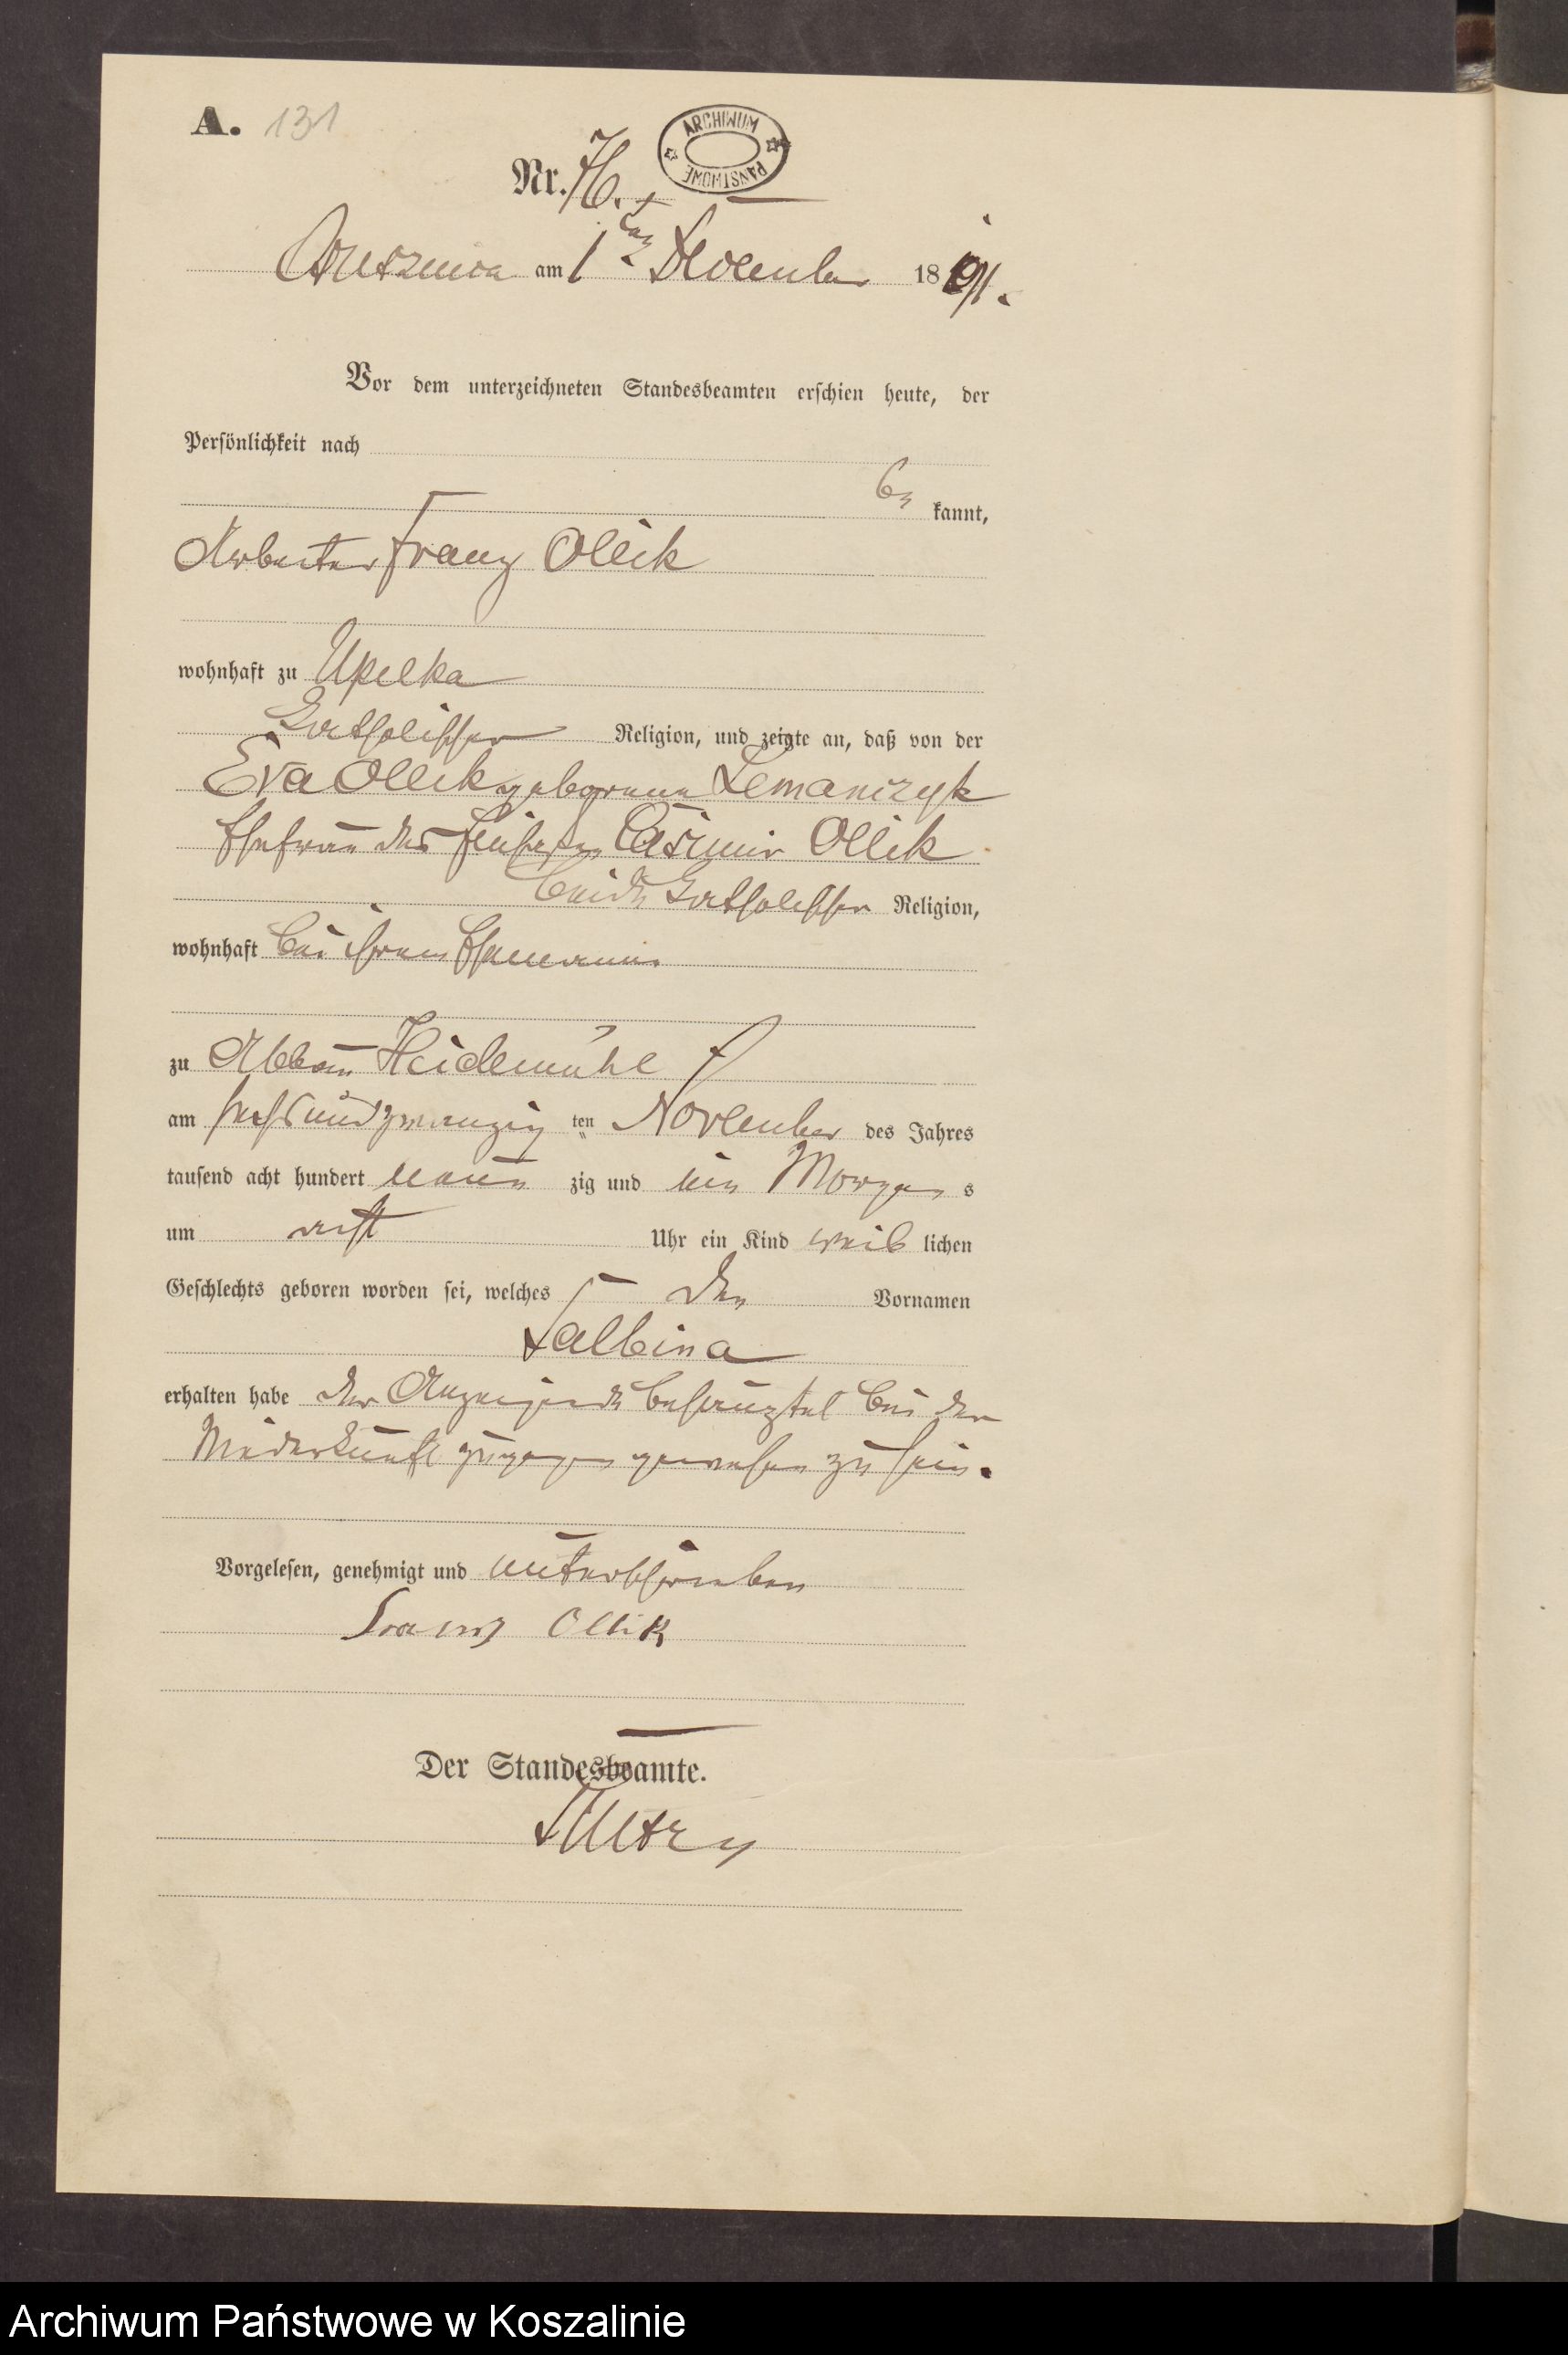 A. 131
Nr. 76.
ARCHIWUM PAŃSTWOWE
am 1ten Dezember 1891.
Vor dem unterzeichneten Standesbeamten erschien heute, der
Persönlichkeit nach
be kannt,
Arbeiter Franz Ollik
wohnhaft zu Upilka
katholischer Religion, und zeigte an, daß von der
Eva Ollik geborene Lemanczyk
Ehefrau des Casimir Ollik
beide katholischer Religion,
wohnhaft bei ihrem Ehemann
zu Abbau Heidemühl
am sechsundzwanzig ten November des Jahres
tausend acht hundert neun zig und ein Morgen s
um acht Uhr ein Kind weib lichen
Geschlechts geboren worden sei, welches den Vornamen
Salbina
erhalten habe der Anzeigende behauptet bei der
Niederkunft zugegen gewesen zu sein.
Vorgelesen, genehmigt und unterschrieben
Franz Ollik
Der Standesbeamte.
Archiwum Państwowe w Koszalinie